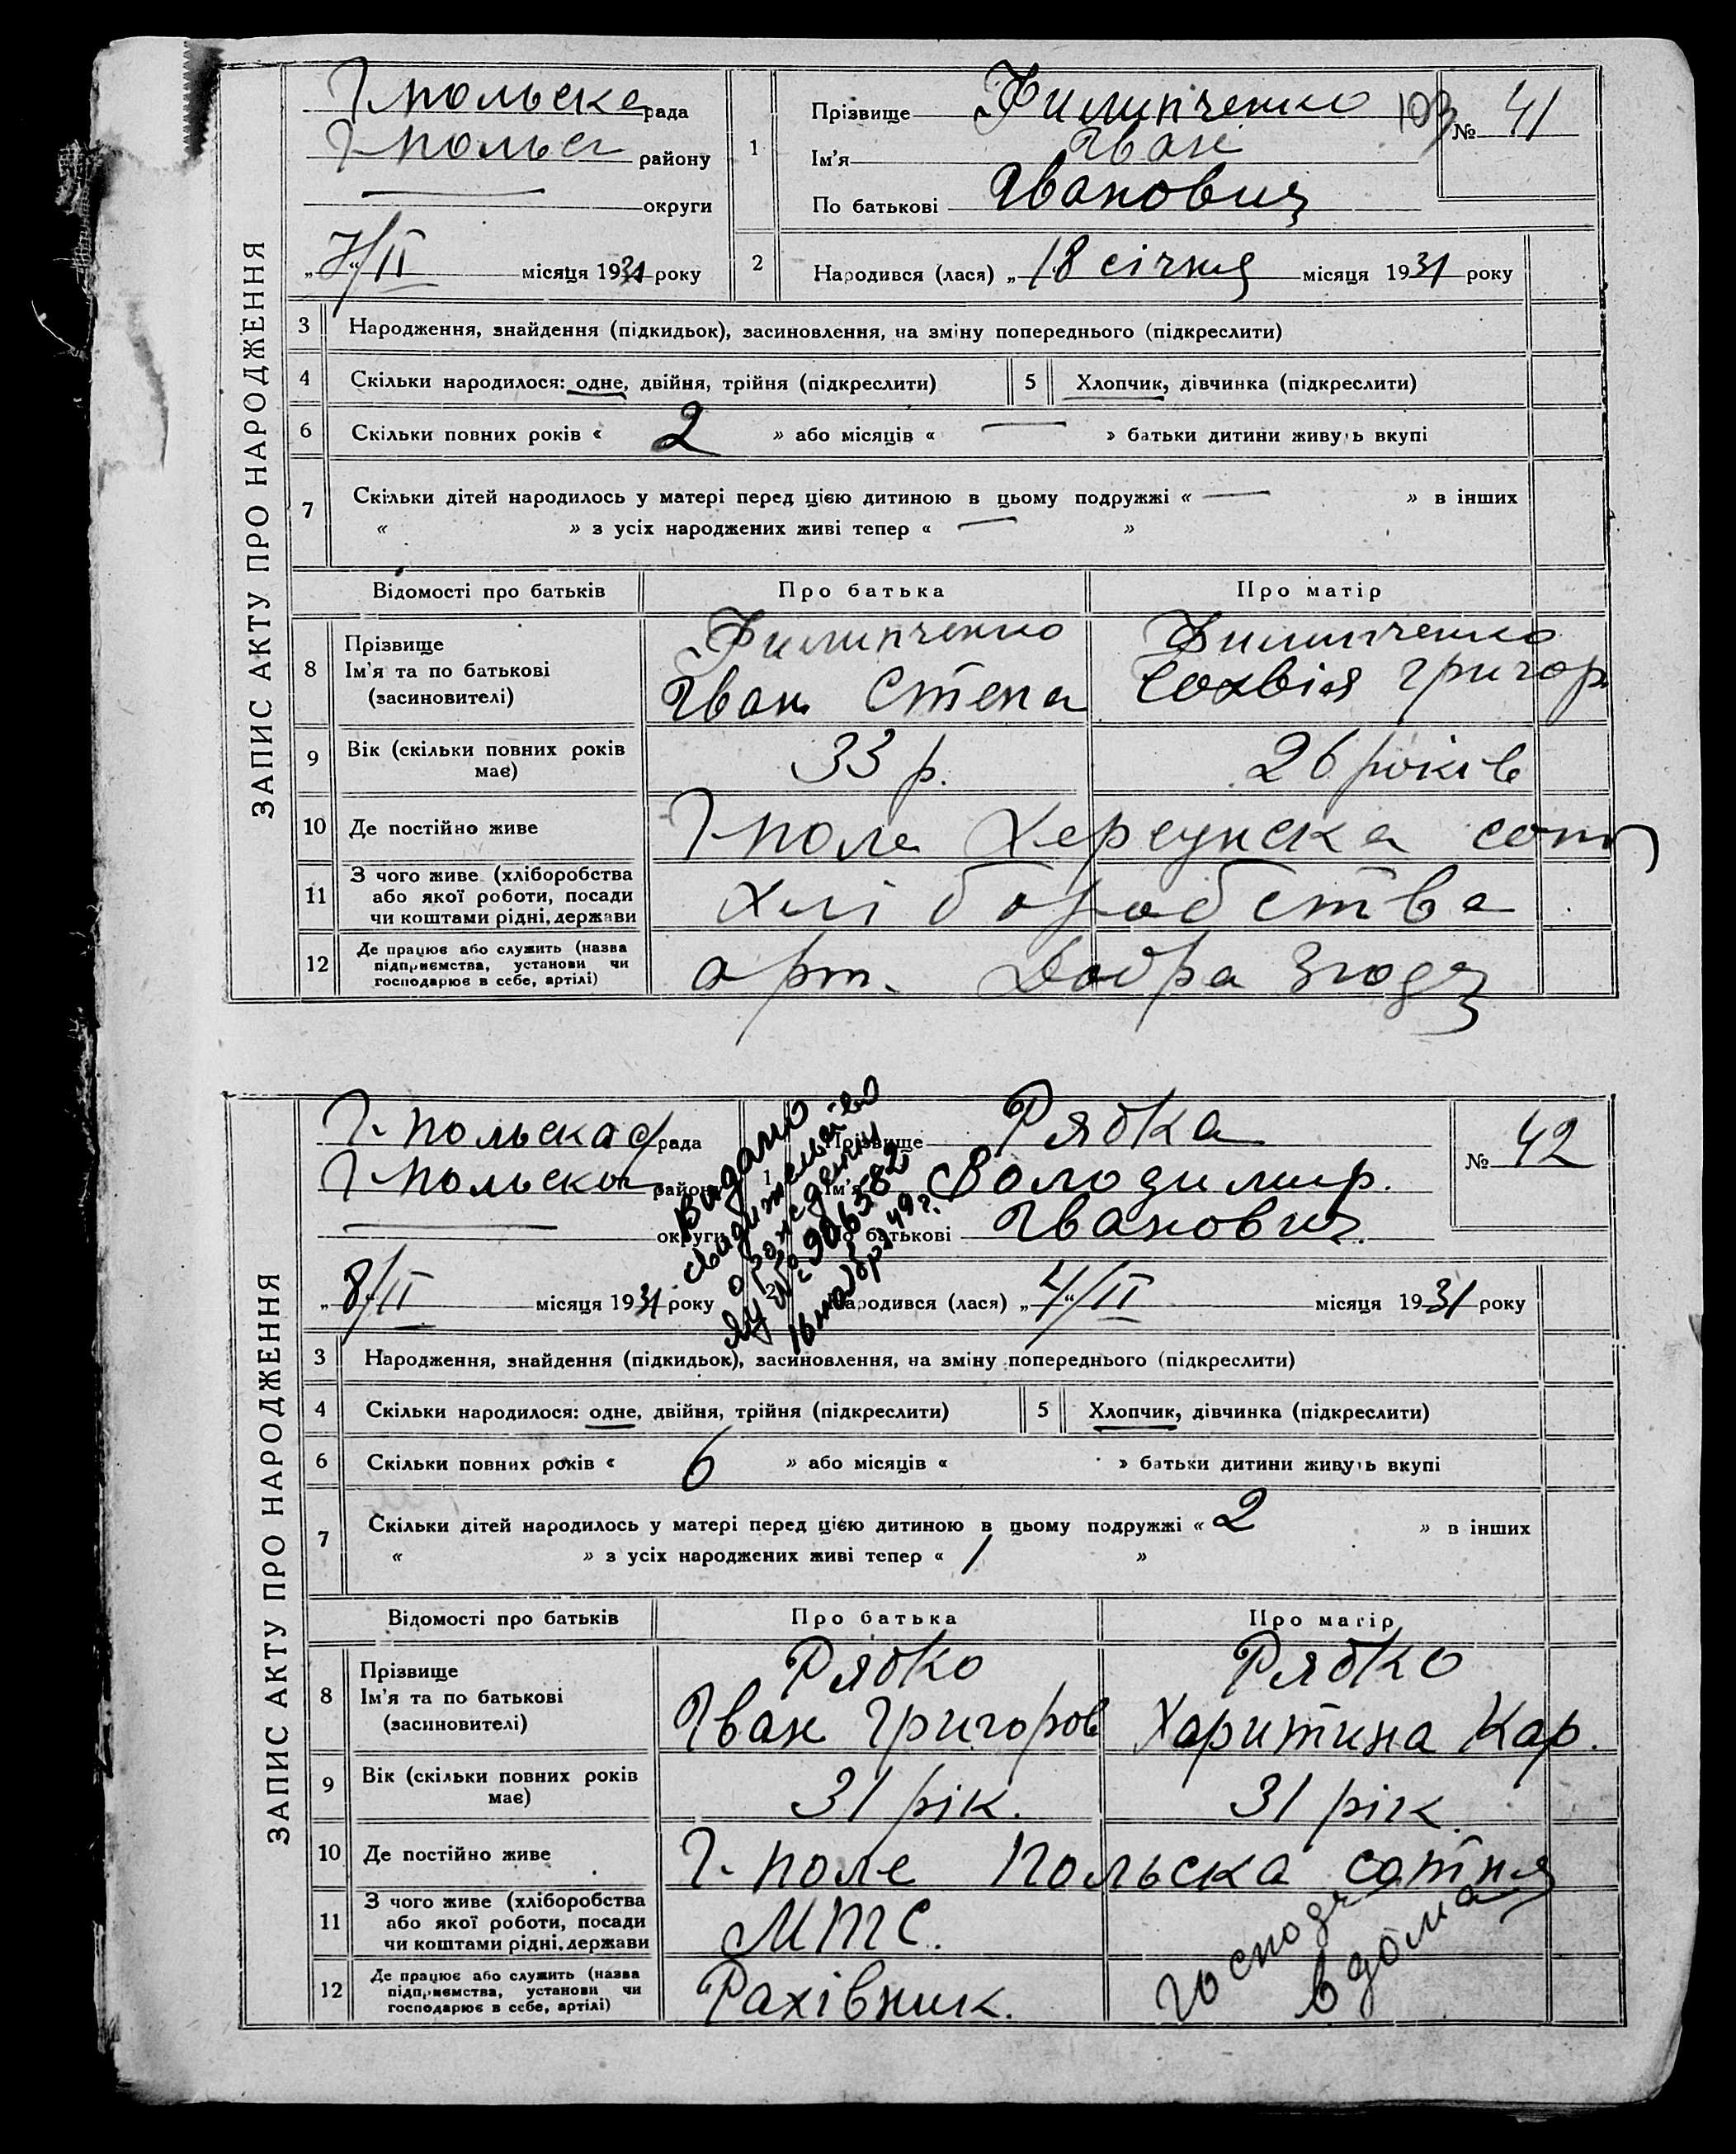 ЗАПИС АКТУ ПРО НАРОДЖЕННЯ
Г-польска рада
Г-польск району
округи
„7/II місяця 1931 року
1
Прізвище Филипченко
Ім'я Іван
По батькові Іванович
103 № 41
2 Народився (лася) „18 січня місяця 1931 року
3 Народження, знайдення (підкидьок), засиновлення, на зміну попереднього (підкреслити)
4 Скільки народилося: одне, двійня, трійня (підкреслити) 5 Хлопчик, дівчинка (підкреслити)
6 Скільки повних років « 2 » або місяців « — » батьки дитини живуть вкупі
7 Скільки дітей народилось у матері перед цією дитиною в цьому подружжі « — » в інших
« » з усіх народжених живі тепер « — »
Відомості про батьків Про батька Про матір
8 Прізвище
Ім'я та по батькові
(засиновителі)
Филипченко
Іван Степа
Филипченко
Сохвія Григор
9 Вік (скільки повних років має) 33 р. 26 років
10 Де постійно живе Г-поле Херсунска сотн
11 З чого живе (хліборобства
або якої роботи, посади
чи коштами рідні, держави
хліборобства
12 Де працює або служить (назва
підприємства, установи чи
господарює в себе, артілі)
арт. Добра Згода
ЗАПИС АКТУ ПРО НАРОДЖЕННЯ
Г-польска с/рада
Г-польска району
округи
„8/II місяця 1931 року
Видано
свидетельство
о рождении
№ 906382
16 ноября 49 г.
1
Прізвище Рябка
Ім'я Володимир.
По батькові Іванович
№ 42
2 Народився (лася) „4/II місяця 1931 року
3 Народження, знайдення (підкидьок), засиновлення, на зміну попереднього (підкреслити)
4 Скільки народилося: одне, двійня, трійня (підкреслити) 5 Хлопчик, дівчинка (підкреслити)
6 Скільки повних років « 6 » або місяців « » батьки дитини живуть вкупі
7 Скільки дітей народилось у матері перед цією дитиною в цьому подружжі « 2 » в інших
« » з усіх народжених живі тепер « 1 »
Відомості про батьків Про батька Про матір
8 Прізвище
Ім'я та по батькові
(засиновителі)
Рябко
Іван Григоров
Рябко
Харитина Кар.
9 Вік (скільки повних років має) 31 рік. 31 рік
10 Де постійно живе Г-поле Польска сотня
11 З чого живе (хліборобства
або якої роботи, посади
чи коштами рідні, держави
МТС.
12 Де працює або служить (назва
підприємства, установи чи
господарює в себе, артілі)
Рахівник.
вдома